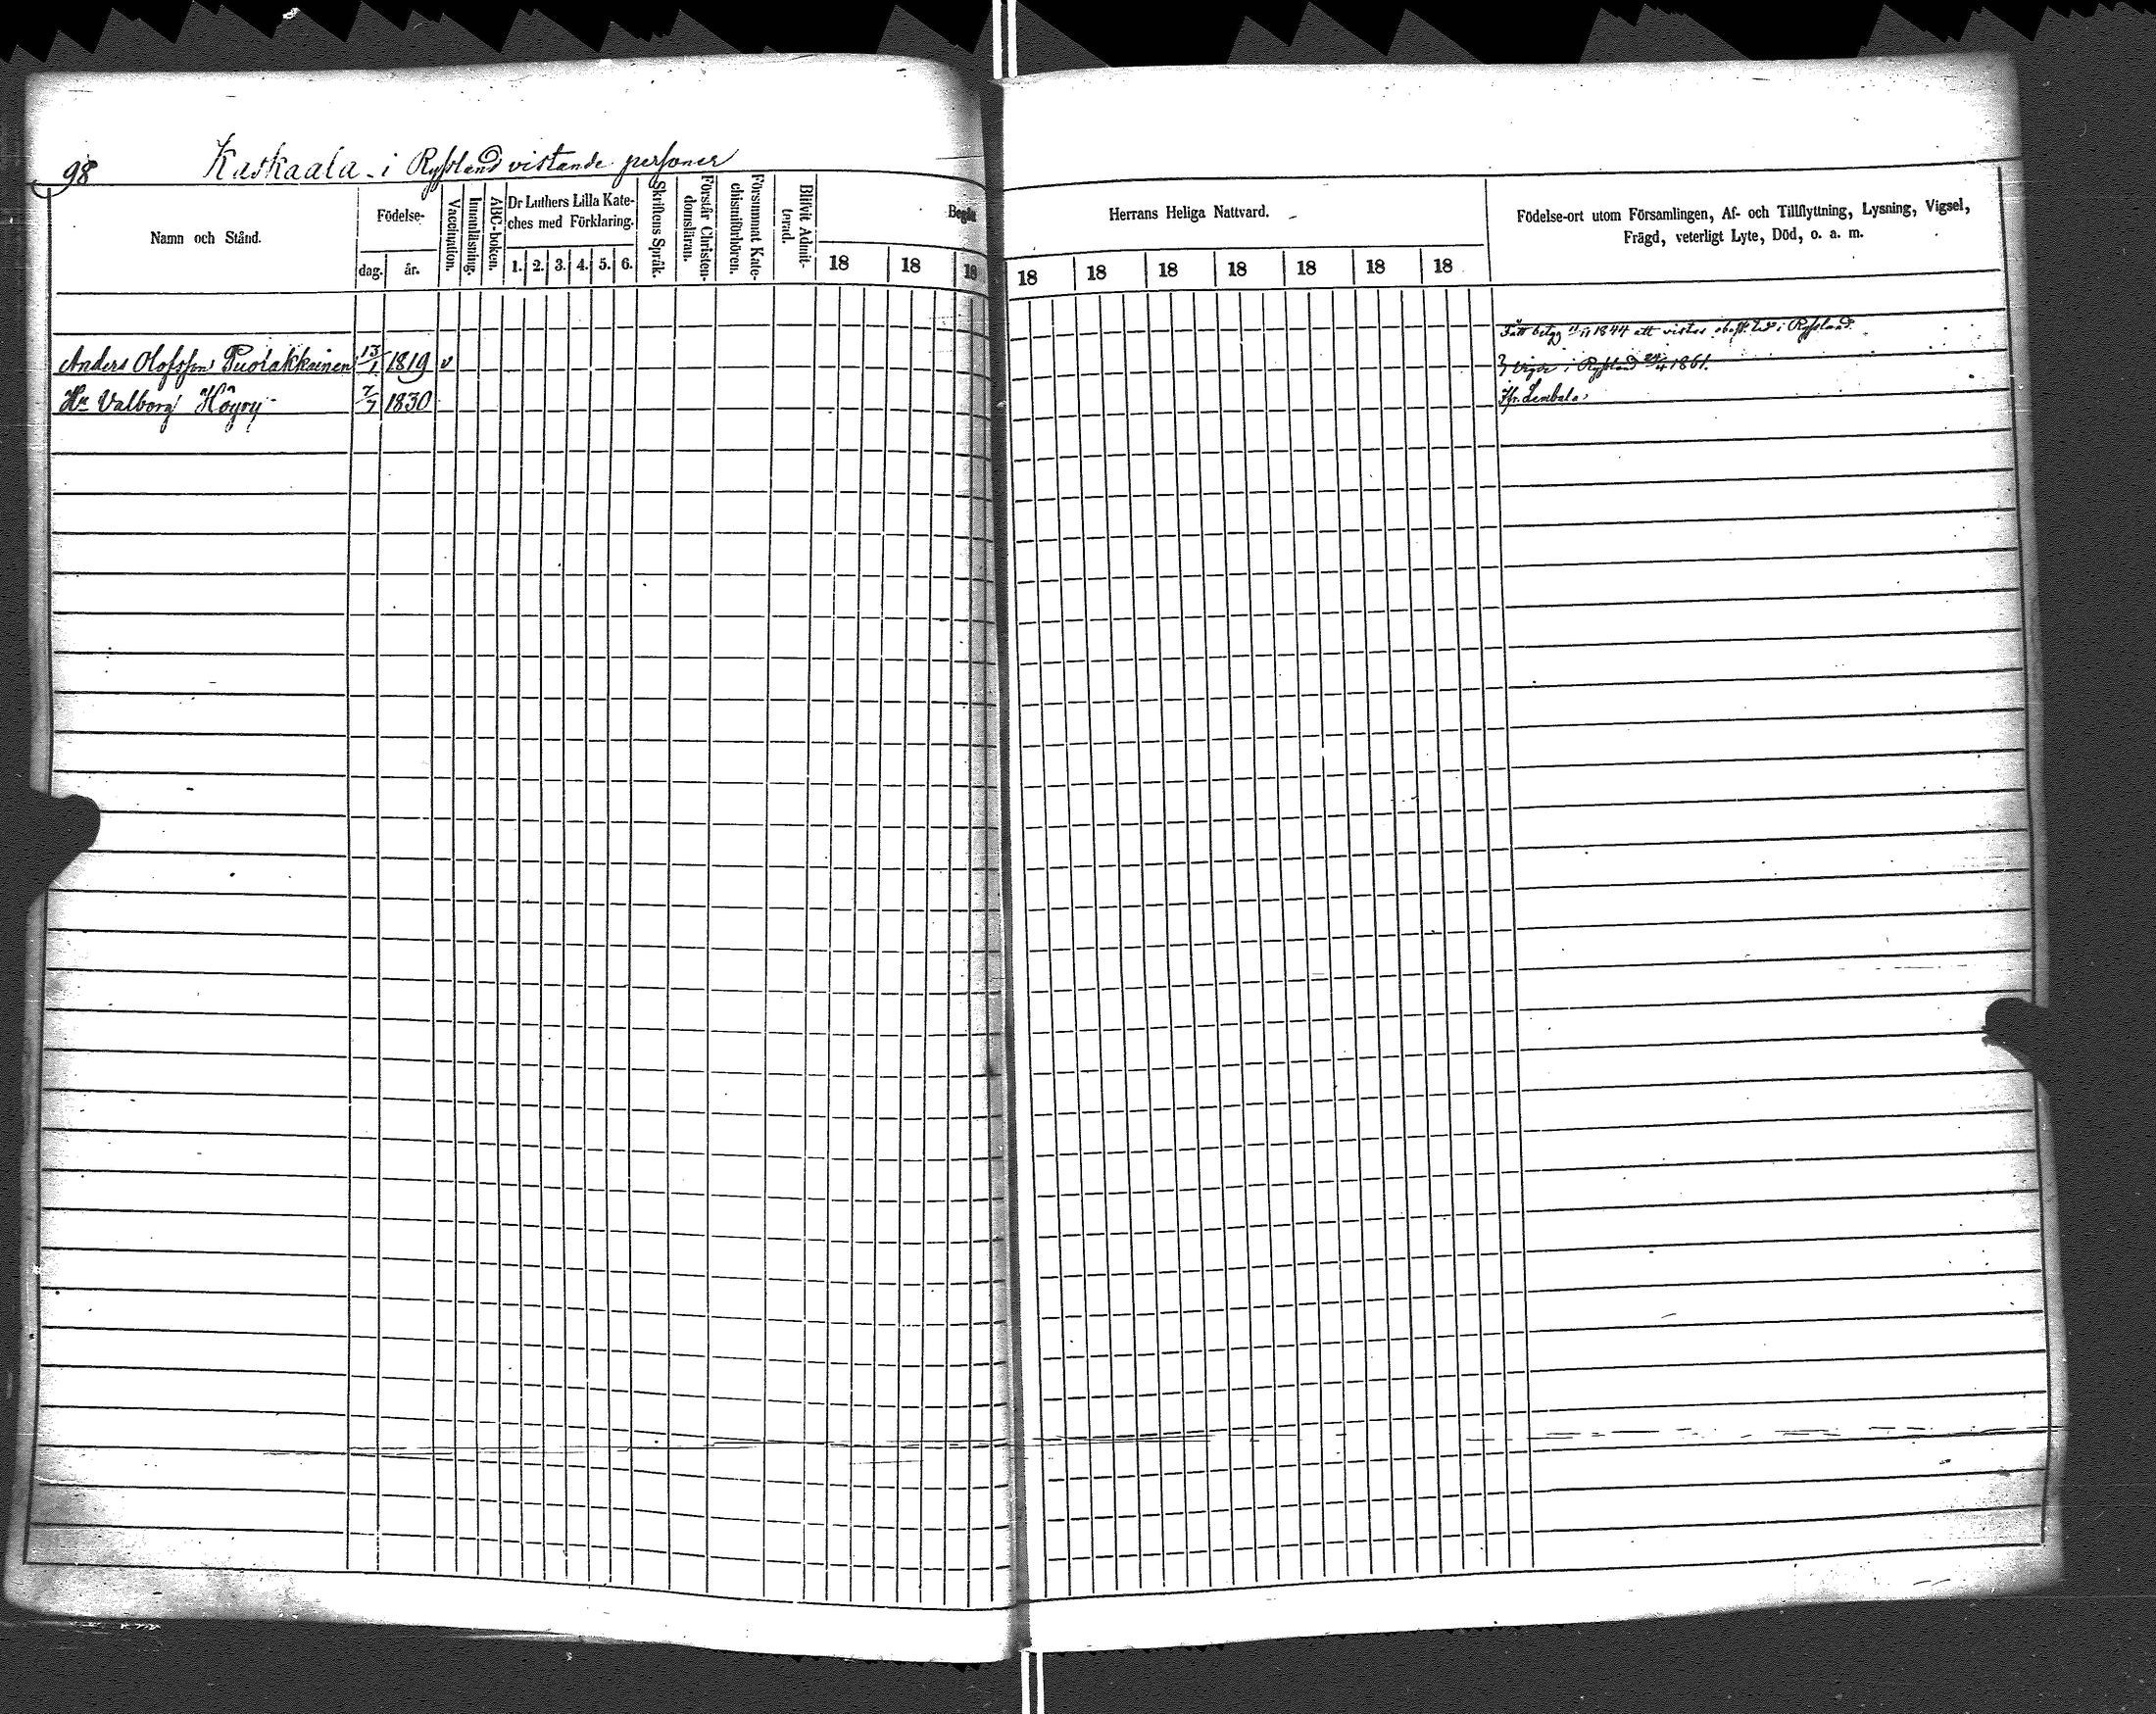 98 Kaskaala i Ryssland vistande personer
Namn och Stånd.
Födelse-
dag. år.
Vaccination.
Innanläsning.
ABC-boken.
Dr Luthers Lilla Kate-
ches med Förklaring.
1. 2. 3. 4. 5. 6.
Skriftens Språk.
Förstår Christen-
domsläran.
Försummat Kate-
chismiförhören.
Blifvit Admit-
terad.
Begått
18 18 18
Herrans Heliga Nattvard.
18 18 18 18 18 18 18
Födelse-ort utom Församlingen, Af- och Tillflyttning, Lysning, Vigsel,
Frägd, veterligt Lyte, Död, o. a. m.
Fått betyg 1844 att vistas i Ryssland.
Anders Olofsson Puolakkainen 13/1 1819 v vigde i Ryssland 1861.
Hu Valborg Höyry 7/7 1830 Ifr. Lembala